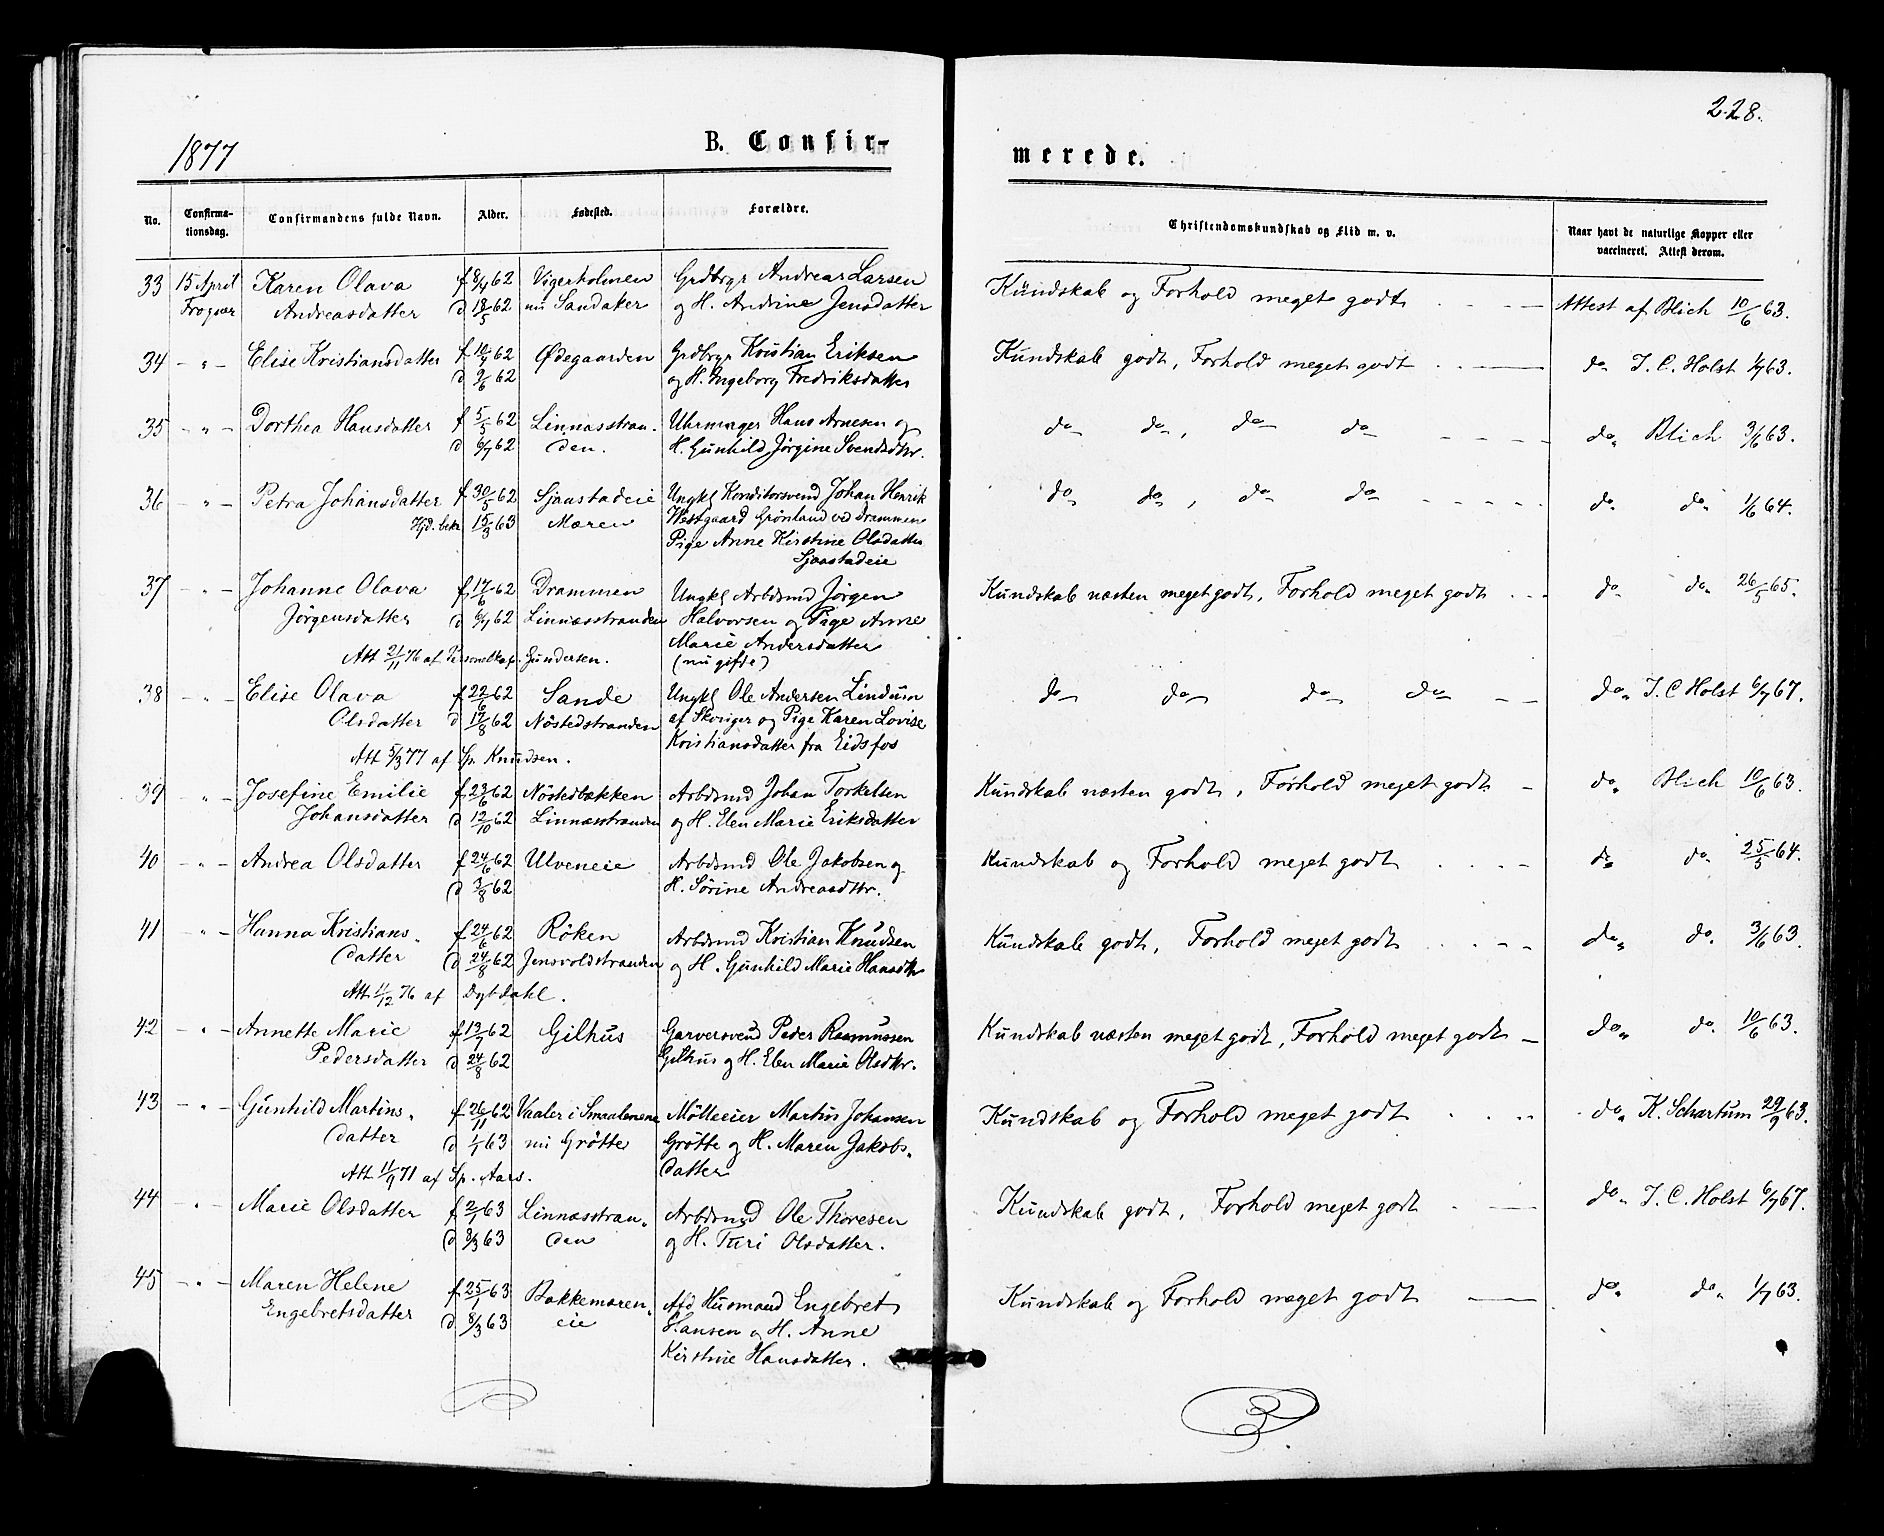 228.
1877
B. Confir-
merede.
No.
Confirma-
tionsdag.
Confirmandens fulde Navn.
Alder.
Fødested.
Forældre.
Christendomskundskab og Flid m. v.
Naar havt de naturlige Kopper eller
vaccineret. Attest derom.
33 15 April Karen Olava f 8/4 62 Vigerholmen Grdbrgr Andreas Larsen Kundskab og Forhold meget godt Attest af Blich 10/6 63.
Frogner Andreasdatter d 18/5 62 nu Sandaker og H. Andrine Jensdatter
34 - " - Elise Kristiansdatter f 10/4 62 Ødegaarden Grdbrgr Kristian Eriksen Kundskab godt, Forhold meget godt do J. C. Holst 1/7 63.
d 9/6 62 og H. Ingeborg Fredriksdatter
35 - " - Dorthea Hansdatter f 5/5 62 Linnæsstran- Uhrmager Hans Arnesen og do do, do do do, Blich 3/6 63.
d 6/7 62 den. H. Gunhild Jørgine Svendsdtr.
36 - " - Petra Johansdatter f 30/5 62 Sjaastadeie Ungkl Konditorsvend Johan Henrik do do, do do do, do, 1/6 64.
Hjd. bekr 15/3 63 Mæren Westgaard Grønland ved Drammen
Pige Anne Kirstine Olsdatter
Sjaastadeie
37 - " - Johanne Olava f 17/6 62 Drammen Ungkl Arbdsmd Jørgen Kundskab næsten meget godt, Forhold meget godt do, do, 26/5 65.
Jørgensdatter d 6/7 62 Linnæsstranden Halvorsen og Pige Anne
Marie Andersdatter
Att 21/11 76 af Personelkap. Gundersen. (nu gifte)
38 - " - Elise Olava f 22/6 62 Sande Ungkl Ole Andersen Lindum do do do do do, J. C Holst 6/7 67.
Olsdatter d 17/8 62 Nøstedstranden af Skouger og Pige Karen Lovise
Att 5/3 77 af Sp. Knudsen. Kristiansdatter fra Eidsfos
39 " - Josefine Emilie f 23/6 62 Nøstedbækken Arbdsmd Johan Torkelsen Kundskab næsten godt, Forhold meget godt do, Blich 10/6 63.
Johansdatter d 12/10 62 Linnæsstranden og H. Elen Marie Eriksdatter
40 - " - Andrea Olsdatter f 24/6 62 Ulveneie Arbdsmd Ole Jakobsen og Kundskab og Forhold meget godt do do. 25/5 64.
d 3/8 62 H. Sørine Andreasdtr.
41 - " - Hanna Kristians- f 24/6 62 Røken Arbdsmd Kristian Knudsen Kundskab godt, Forhold meget godt do, do. 3/6 63.
datter d 24/8 62 Jensvoldstranden og H. Gunhild Marie Hansdtr
Att 11/12 76 af Dybdahl.
42 - " - Annette Marie f 13/7 62 Gilhus Garversvend Peder Rasmussen Kundskab næsten meget godt, Forhold meget godt do, do. 10/6 63.
Pedersdatter d 24/8 62 Gilhus og H. Elen Marie Olsdtr.
43 - " - Gunhild Martins- f 26/11 62 Vaaler i Smaalenene Mølleeier Martin Johansen Kundskab og Forhold meget godt do, K. Schartum 29/9 63.
datter d 1/1 63 nu Grøtte Grøtte og H. Maren Jakobs-
Att 11/9 71 af Sp. Aars. datter
44 - " - Marie Olsdatter f 2/1 63 Linnæsstran- Arbdsmd Ole Thoresen Kundskab godt, Forhold meget godt do, J. C. Holst 6/7 67.
d 8/3 63 den og H. Turi Olsdatter.
45 - " - Maren Helene f 25/1 63 Bakkemæren- Afd Husmand Engebret Kundskab og Forhold meget godt do, do, 1/7 63.
Engebretsdatter d 8/3 63 eie Hansen og H. Anne
Kirstine Hansdatter.